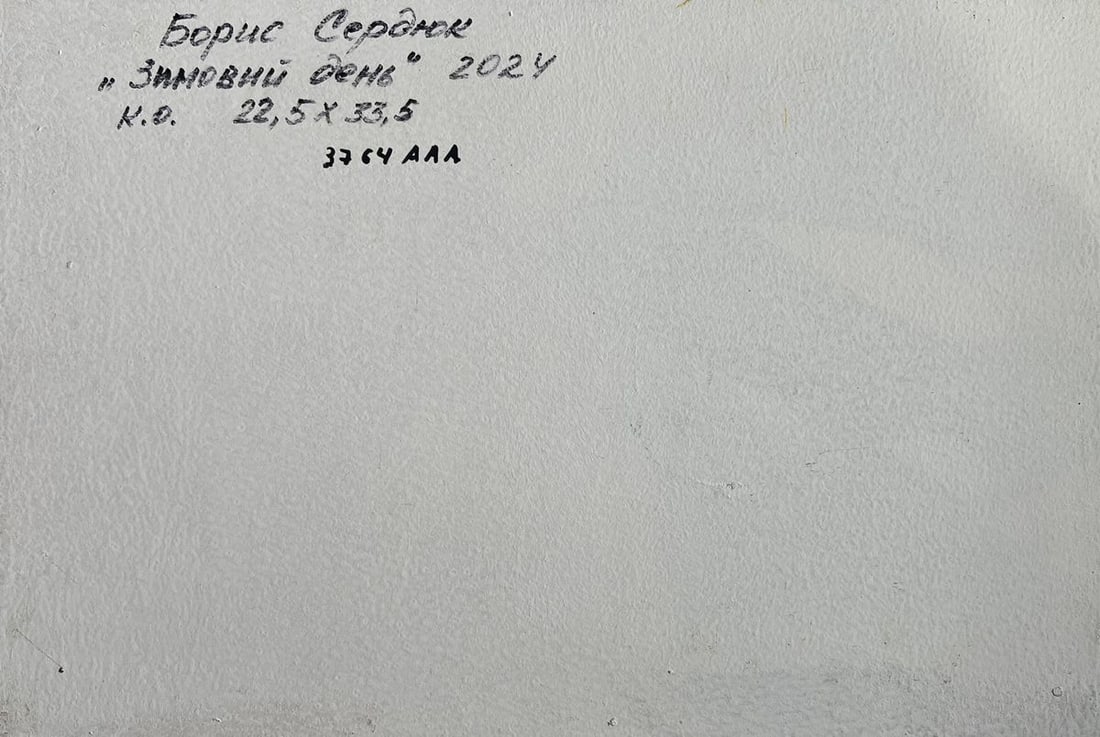 Борис Сердюк
„Зимовий день" 2024
к.о. 22,5 х 33,5
3764 ААА